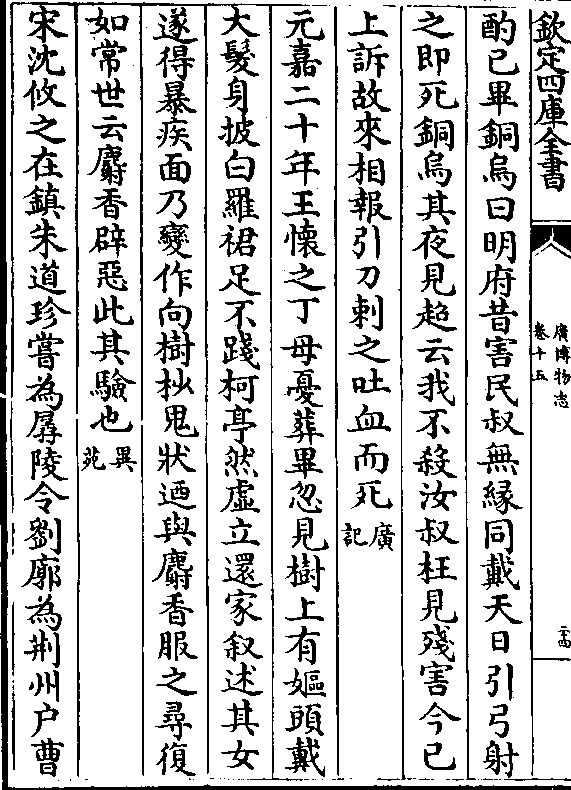 欽定四庫全書
廣博物志
卷十五
二十四
酌已畢銅烏曰明府昔害民叔無縁同戴天日引弓射
之即死銅烏其夜見超云我不殺汝叔枉見殘害今已
上訴故來相報引刀刺之吐血而死廣記
元嘉二十年王懷之丁母憂葬畢忽見樹上有嫗頭戴
大髮身披白羅裙足不踐柯亭然虛立還家叙述其女
遂得暴疾面乃變作向樹杪鬼狀迺與麝香服之尋復
如常世云麝香辟惡此其驗也異苑
宋沈攸之在鎮朱道珍嘗為孱陵令劉廓為荆州户曹